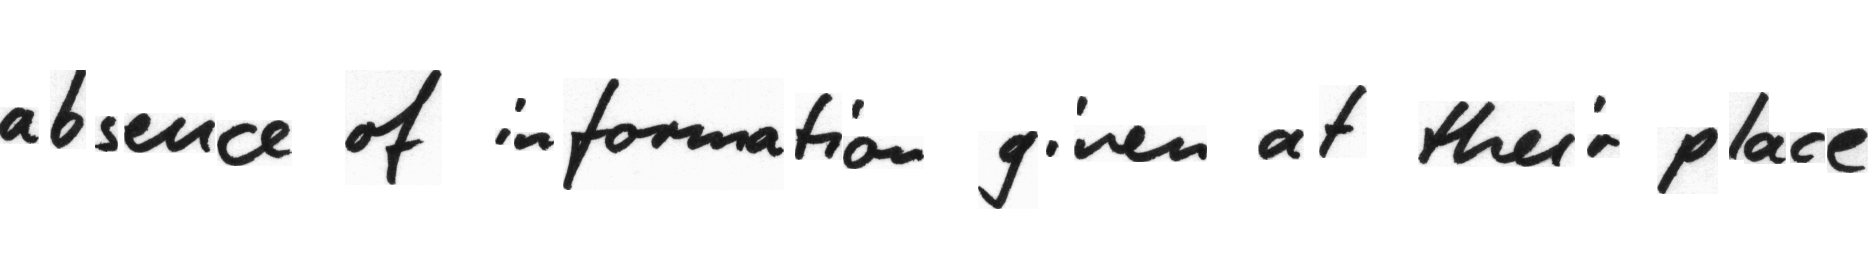 absence of information given at their place